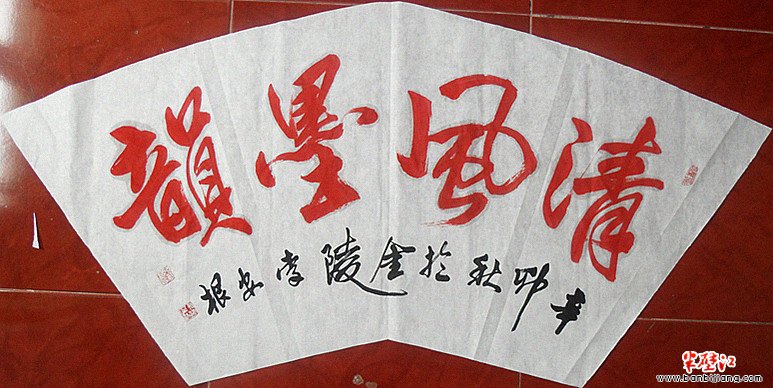 清风墨韻
辛卯秋於金陵李安根
半壁江
www.banbijiang.com